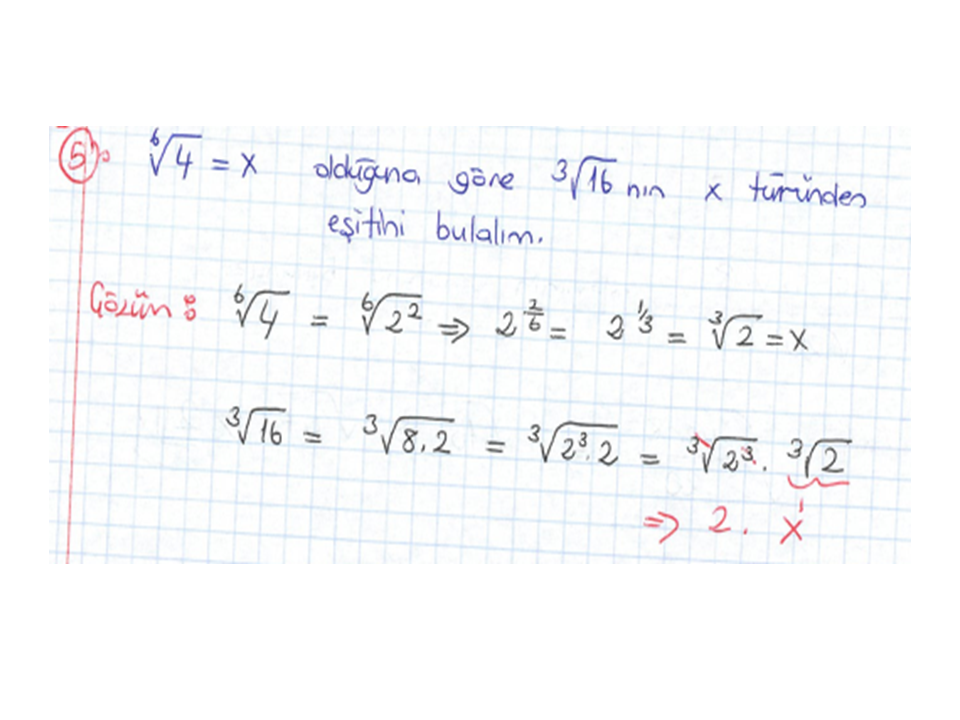 5) ⁶√4 = x olduğuna göre ³√16 nın x türünden
eşitini bulalım.
Çözüm : ⁶√4 = ⁶√2² ⇒ 2^(2/6) = 2^(1/3) = ³√2 = x
³√16 = ³√8.2 = ³√2³.2 = ³√2³ . ³√2
⇒ 2 . x